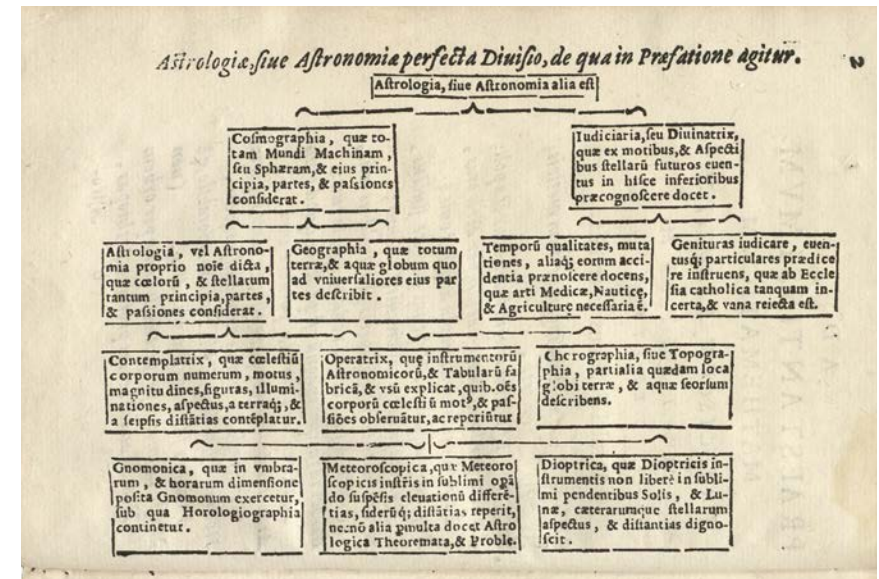 Astrologiæ, siue Astronomiæ perfecta Diuisio, de qua in Præfatione agitur. 2
Astrologia, siue Astronomia alia est
Cosmographia, quæ to-
tam Mundi Machinam,
seu Sphæram, & eius prin-
cipia, partes, & passiones
considerat.
Iudiciaria, seu Diuinatrix,
quæ ex motibus, & Aspecti
bus stellarū futuros euen-
tus in hisce inferioribus
præcognoscere docet.
Astrologia, vel Astrono-
mia proprio noīe dicta,
quæ cœlorū, & stellarum
tantum principia, partes,
& passiones considerat.
Geographia, quæ totum
terræ, & aquæ globum quo
ad vniuersaliores eius par
tes describit.
Temporū qualitates, muta
tiones, aliaq; eorum acci-
dentia prænoscere docens,
quæ arti Medicæ, Nauticę,
& Agriculturę necessaria ē.
Genituras iudicare, euen-
tusq; particulares prædice
re instruens, quæ ab Eccle
sia catholica tanquam in-
certa, & vana reiecta est.
Contemplatrix, quæ cœlestiū
corporum numerum, motus,
magnitudines, figuras, illumi-
nationes, aspectus, a terraq;, &
a seipsis distātias contēplatur.
Operatrix, quę instrumentorū
Astronomicorū, & Tabularū fa-
bricā, & vsū explicat, quib. oēs
corporū cœlestiū motꝰ, & pas-
siōes obseruātur, ac reperiūtur
Chorographia, siue Topogra-
phia, partialia quædam loca
globi terræ, & aquæ seorsum
describens.
Gnomonica, quæ in vmbra-
rum, & horarum dimensione
posita Gnomonum exercetur,
sub qua Horologiographia
continetur.
Meteoroscopica, quæ Meteoro
scopicis instris in sublimi
do suspēsis eleuationū differē-
tias, siderūq; distātias reperit,
necnō alia pmulta docet Astro
logica Theoremata, & Proble.
Dioptrica, quæ Dioptricis in-
strumentis non liberè in subli-
mi pendentibus Solis, & Lu-
næ, cæterarumque stellarum
aspectus, & distantias digno-
scit.